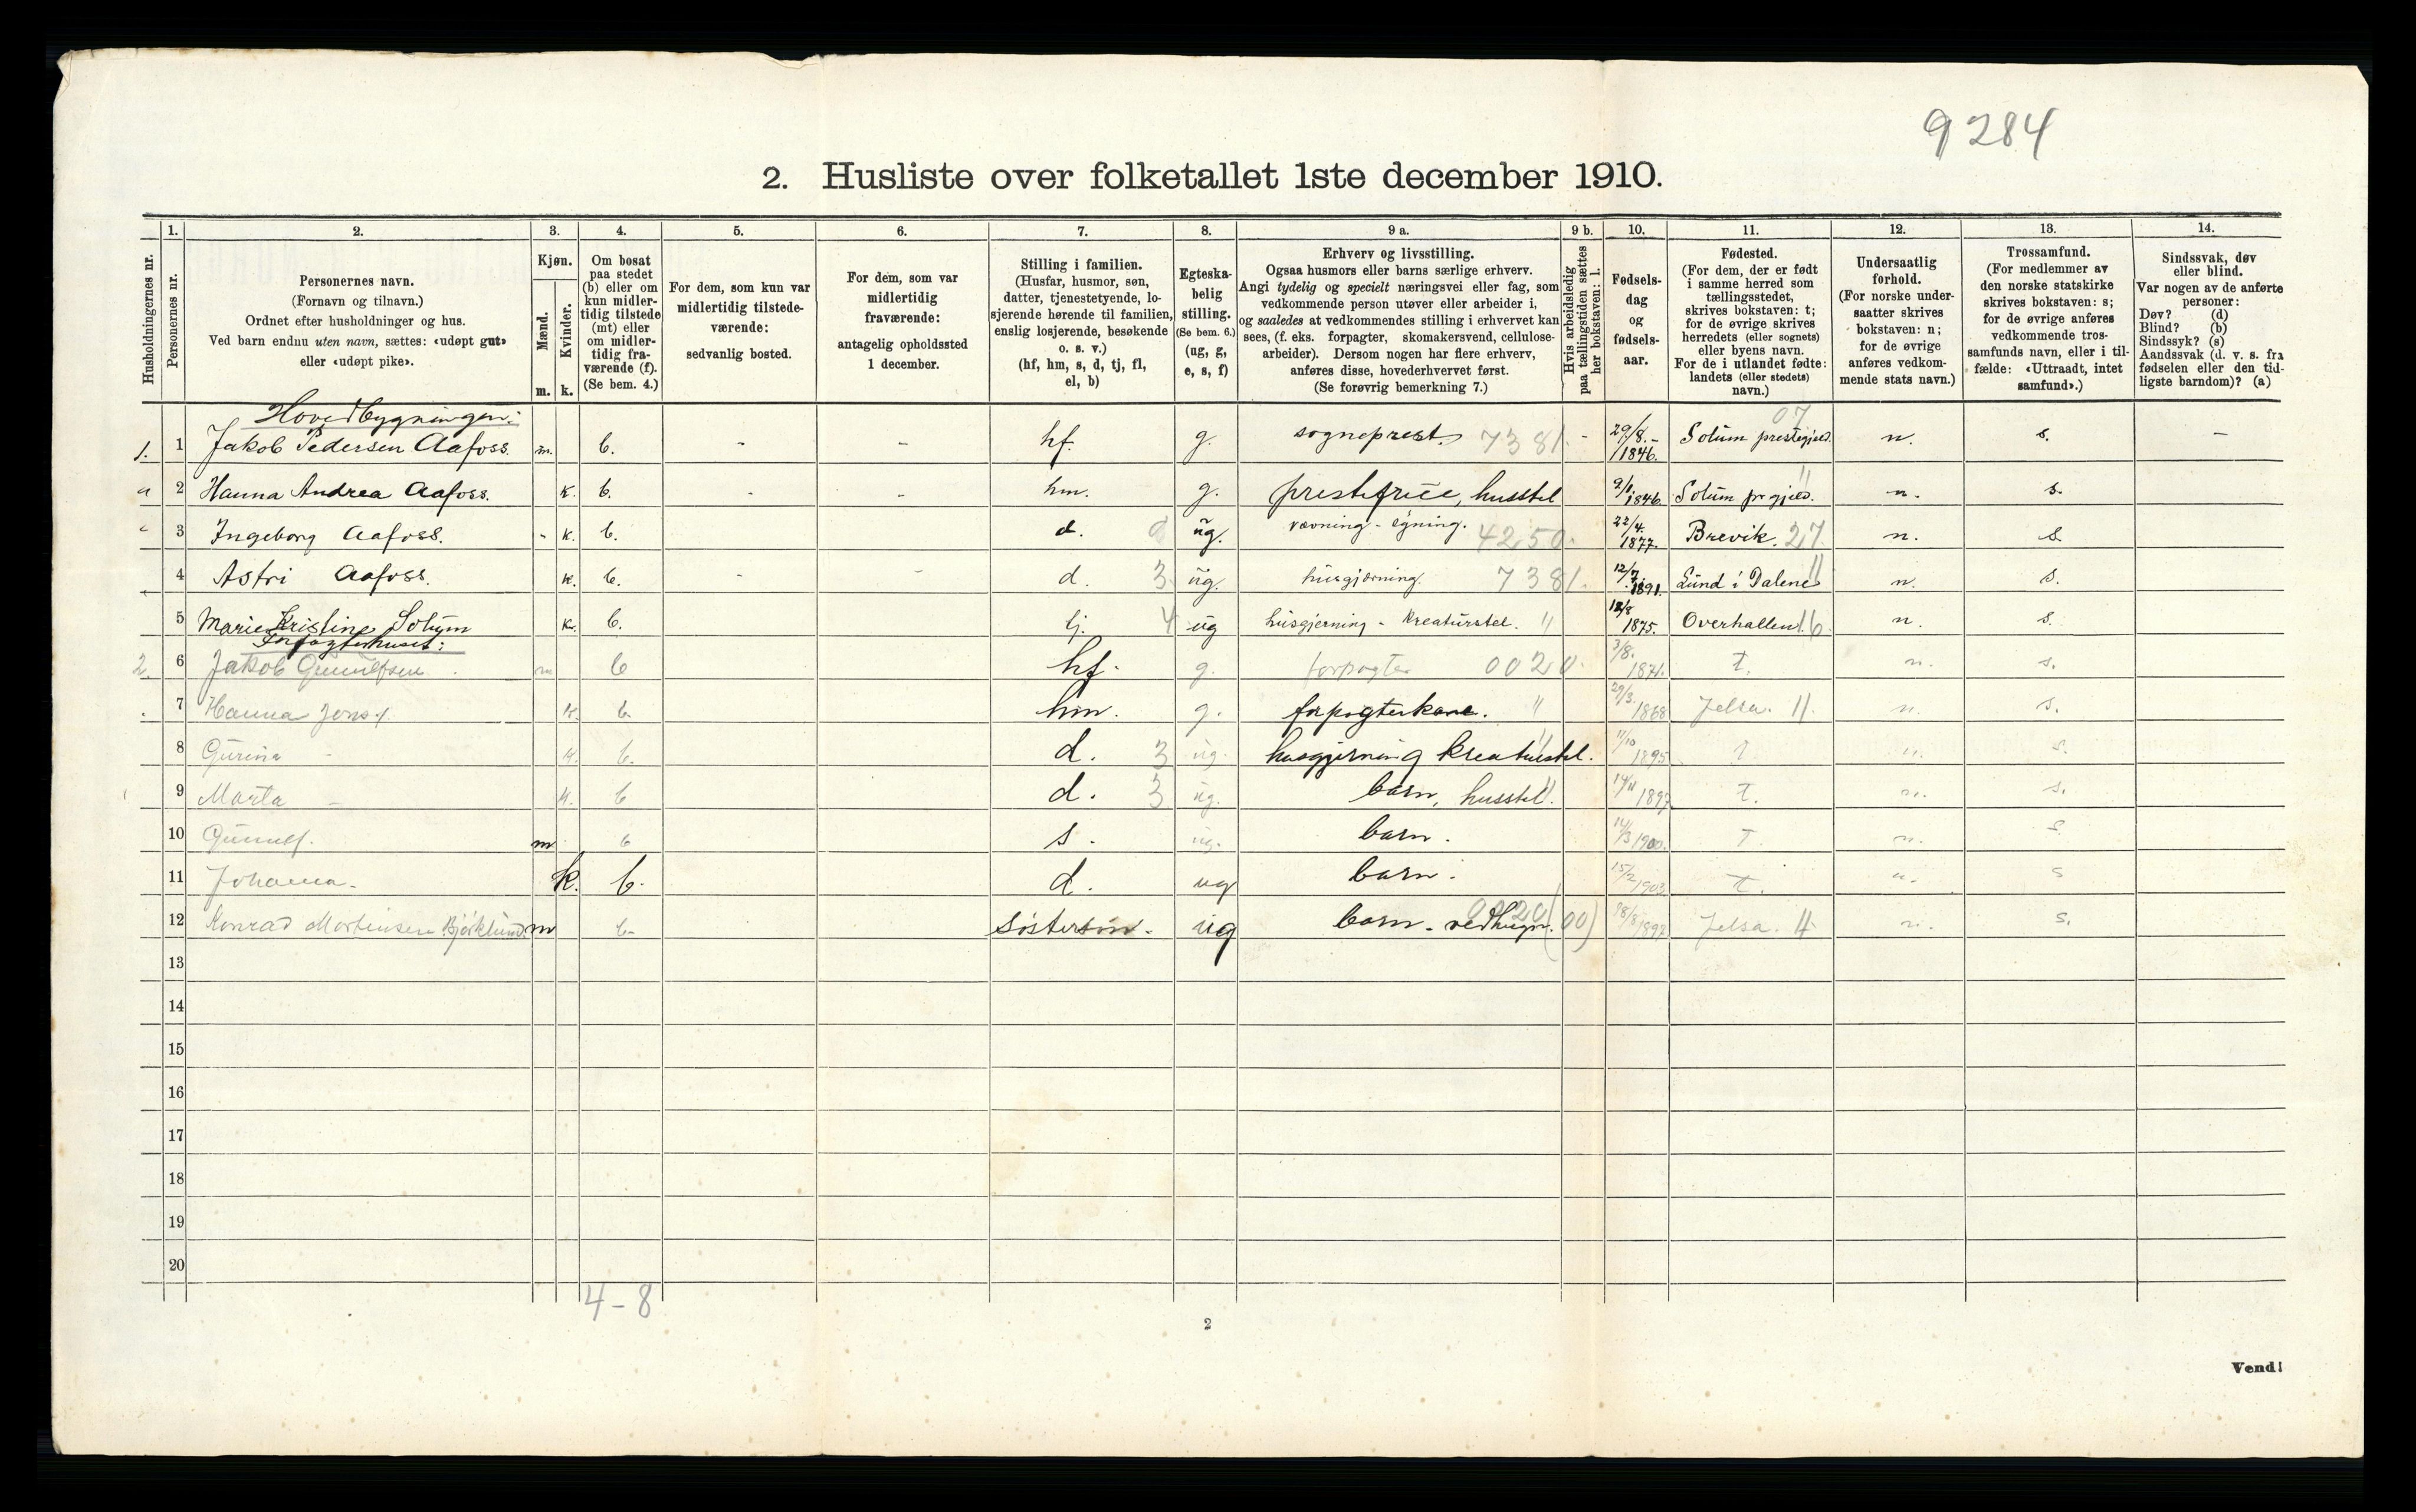 9284
2. Husliste over folketallet 1ste december 1910.
Husholdningernes nr.
1. Personernes nr.
2. Personernes navn.
(Fornavn og tilnavn.)
Ordnet efter husholdninger og hus.
Ved barn endnu uten navn, sættes: «udøpt gut»
eller «udøpt pike».
3. Kjøn.
Mænd. m.
Kvinder. k.
4. Om bosat
paa stedet
(b) eller om
kun midler-
tidig tilstede
(mt) eller
om midler-
tidig fra-
værende (f).
(Se bem. 4.)
5. For dem, som kun var
midlertidig tilstede-
værende:
sedvanlig bosted.
6. For dem, som var
midlertidig
fraværende:
antagelig opholdssted
1 december.
7. Stilling i familien.
(Husfar, husmor, søn,
datter, tjenestetyende, lo-
sjerende hørende til familien,
enslig losjerende, besøkende
o. s. v.)
(hf, hm, s, d, tj, fl,
el, b)
8. Egteska-
belig
stilling.
(Se bem. 6.)
(ug, g,
e, s, f)
9 a. Erhverv og livsstilling.
Ogsaa husmors eller barns særlige erhverv.
Angi tydelig og specielt næringsvei eller fag, som
vedkommende person utøver eller arbeider i,
og saaledes at vedkommendes stilling i erhvervet kan
sees, (f. eks. forpagter, skomakersvend, cellulose-
arbeider). Dersom nogen har flere erhverv,
anføres disse, hovederhvervet først.
(Se forøvrig bemerkning 7.)
9 b. Hvis arbeidsledig
paa tællingstiden sættes
her bokstaven: l.
10. Fødsels-
dag
og
fødsels-
aar.
11. Fødested.
(For dem, der er født
i samme herred som
tællingsstedet,
skrives bokstaven: t;
for de øvrige skrives
herredets (eller sognets)
eller byens navn.
For de i utlandet fødte:
landets (eller stedets)
navn.)
12. Undersaatlig
forhold.
(For norske under-
saatter skrives
bokstaven: n;
for de øvrige
anføres vedkom-
mende stats navn.)
13. Trossamfund.
(For medlemmer av
den norske statskirke
skrives bokstaven: s;
for de øvrige anføres
vedkommende tros-
samfunds navn, eller i til-
fælde: «Uttraadt, intet
samfund».)
14. Sindssvak, døv
eller blind.
Var nogen av de anførte
personer:
Døv? (d)
Blind? (b)
Sindssyk? (s)
Aandssvak (d. v. s. fra
fødselen eller den tid-
ligste barndom)? (a)
Hovedbygningen:
1. 1 Jakob Pedersen Aafoss. m. b. - - hf. g. sogneprest. 7381. - 29/8.- 1846. Solum prestegjeld. 07 n. s. -
2 Hanna Andrea Aafoss. k. b. - - hm. g. prestefrue, husstel 9/1 1846. Solum prgjeld. " n. s.
3 Ingeborg Aafoss. - k. b. d. 0 ug. vævning - syning. 4250. 22/4. 1877. Brevik. 27. n. s.
4 Astri Aafoss. k. b. - - d. 3 ug. husgjerning. 7381. 12/7 1891. Lund i Dalene " n. s.
5 Marie Kristine Solum k. b. tj. 4 ug husgjerning - kreaturstel. " 18/8 1875. Overhallen. 16. n. s.
Forpagterhuset:
2. 6 Jakob Gunulfsen m b hf. g. forpagter 0020. 3/8. 1871. t. n. s.
7 Hanna Jons d. k. b. hm. g. forpagterkone. " 29/3. 1868 Jelsa. 11. n. s.
8 Gurina - k. b. d. 3 ug. husgjerning kreaturstel. " 11/10 1895 t n. s.
9 Marta - k. b d. 3 ug. barn, husstel. " 14/11 1897 t. n. s.
10 Gunulf. m b s. ug. barn. 14/3 1900. t. n. s.
11 Johanna. k. b. d. ug barn. 15/2 1903. t. n. s
12 Konrad Mortensen Bjørklund. m b søstersøn. ug barn - vedhugn. 0020 (00) 18/8 1897 Jelsa. 11 n. s.
13
14
15
16
17
18
19
20
4-8
2
Vend!